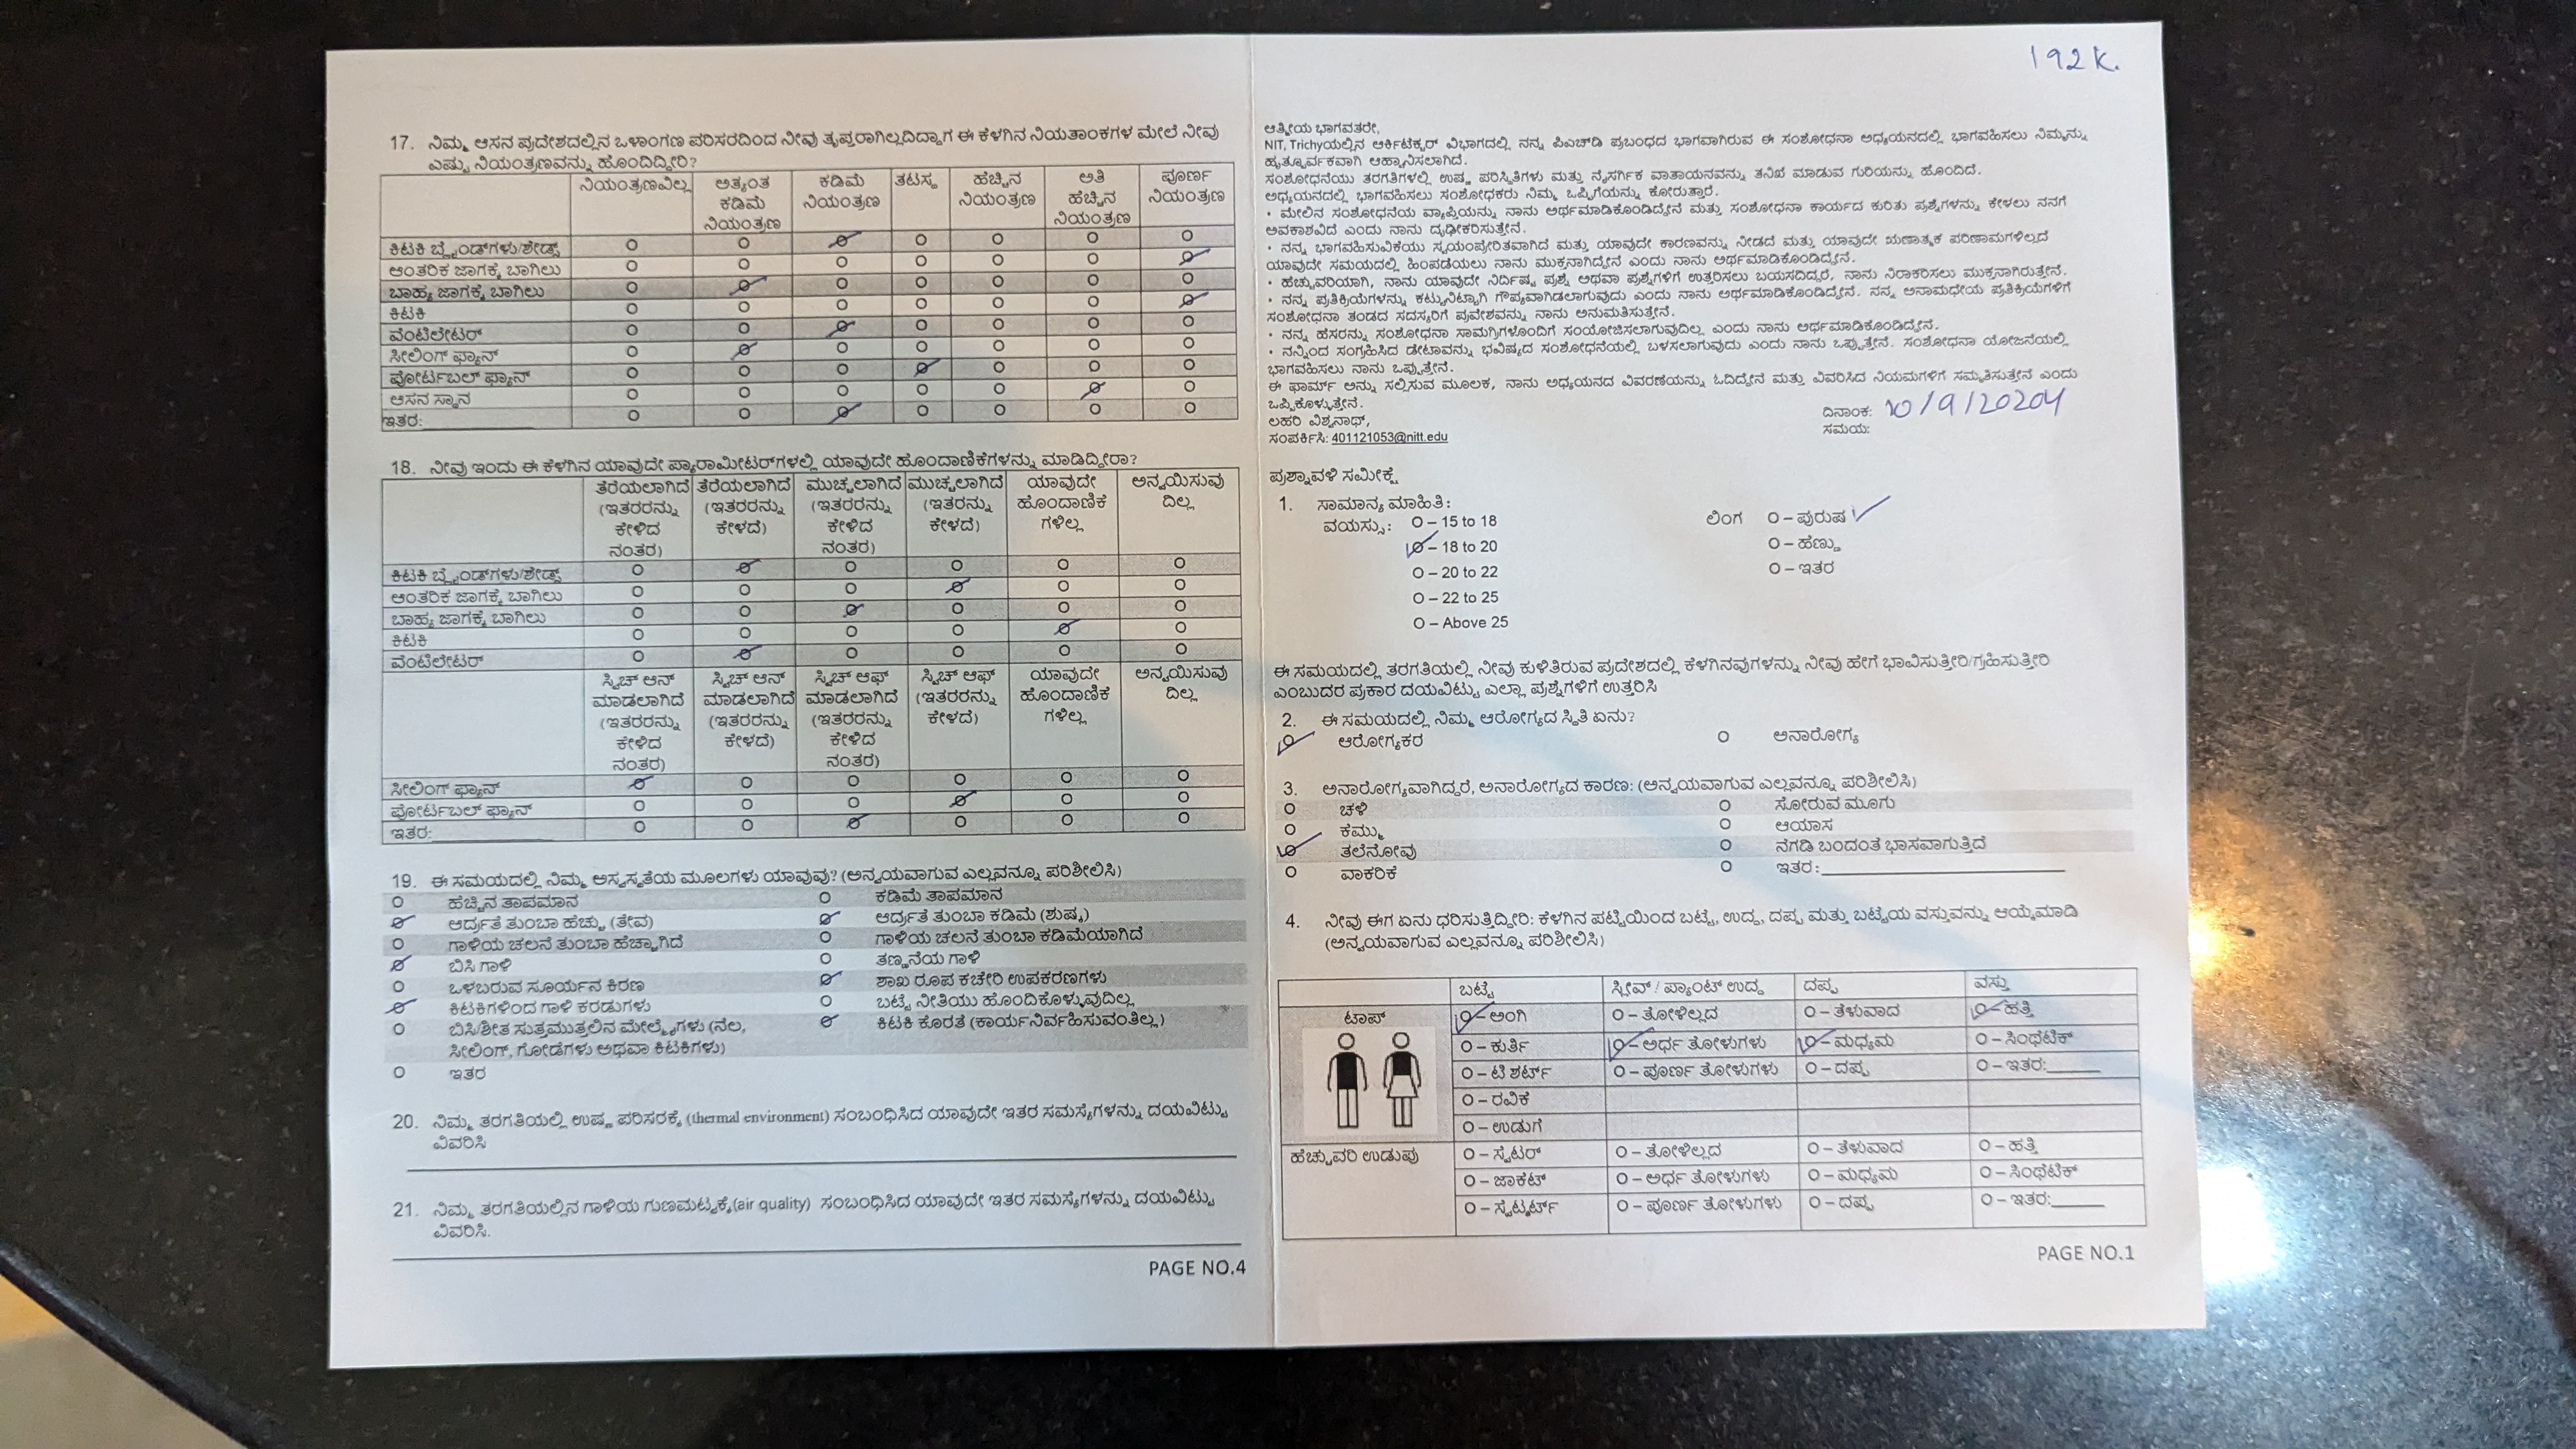 17. ನಿಮ್ಮ ಆಸನ ಪ್ರದೇಶದಲ್ಲಿನ ಒಳಾಂಗಣ ಪರಿಸರದಿಂದ ನೀವು ತೃಪ್ತರಾಗಿಲ್ಲದಿದ್ದಾಗ ಈ ಕೆಳಗಿನ ನಿಯತಾಂಕಗಳ ಮೇಲೆ ನೀವು
ಎಷ್ಟು ನಿಯಂತ್ರಣವನ್ನು ಹೊಂದಿದ್ದೀರಿ?
ನಿಯಂತ್ರಣವಿಲ್ಲ ಅತ್ಯಂತ ಕಡಿಮೆ ನಿಯಂತ್ರಣ ಕಡಿಮೆ ನಿಯಂತ್ರಣ ತಟಸ್ಥ ಹೆಚ್ಚಿನ ನಿಯಂತ್ರಣ ಅತಿ ಹೆಚ್ಚಿನ ನಿಯಂತ್ರಣ ಪೂರ್ಣ ನಿಯಂತ್ರಣ
ಕಿಟಕಿ ಬ್ಲೈಂಡ್‌ಗಳು/ಶೇಡ್ಸ್
ಆಂತರಿಕ ಜಾಗಕ್ಕೆ ಬಾಗಿಲು
ಬಾಹ್ಯ ಜಾಗಕ್ಕೆ ಬಾಗಿಲು
ಕಿಟಕಿ
ವೆಂಟಿಲೇಟರ್
ಸೀಲಿಂಗ್ ಫ್ಯಾನ್
ಪೋರ್ಟಬಲ್ ಫ್ಯಾನ್
ಆಸನ ಸ್ಥಾನ
ಇತರ:
18. ನೀವು ಇಂದು ಈ ಕೆಳಗಿನ ಯಾವುದೇ ಪ್ಯಾರಾಮೀಟರ್‌ಗಳಲ್ಲಿ ಯಾವುದೇ ಹೊಂದಾಣಿಕೆಗಳನ್ನು ಮಾಡಿದ್ದೀರಾ?
ತೆರೆಯಲಾಗಿದೆ (ಇತರರನ್ನು ಕೇಳಿದ ನಂತರ) ತೆರೆಯಲಾಗಿದೆ (ಇತರರನ್ನು ಕೇಳದೆ) ಮುಚ್ಚಲಾಗಿದೆ (ಇತರರನ್ನು ಕೇಳಿದ ನಂತರ) ಮುಚ್ಚಲಾಗಿದೆ (ಇತರರನ್ನು ಕೇಳದೆ) ಯಾವುದೇ ಹೊಂದಾಣಿಕೆ ಗಳಿಲ್ಲ ಅನ್ವಯಿಸುವು ದಿಲ್ಲ
ಕಿಟಕಿ ಬ್ಲೈಂಡ್‌ಗಳು/ಶೇಡ್ಸ್
ಆಂತರಿಕ ಜಾಗಕ್ಕೆ ಬಾಗಿಲು
ಬಾಹ್ಯ ಜಾಗಕ್ಕೆ ಬಾಗಿಲು
ಕಿಟಕಿ
ವೆಂಟಿಲೇಟರ್
ಸ್ವಿಚ್ ಆನ್ ಮಾಡಲಾಗಿದೆ (ಇತರರನ್ನು ಕೇಳಿದ ನಂತರ) ಸ್ವಿಚ್ ಆನ್ ಮಾಡಲಾಗಿದೆ (ಇತರರನ್ನು ಕೇಳದೆ) ಸ್ವಿಚ್ ಆಫ್ ಮಾಡಲಾಗಿದೆ (ಇತರರನ್ನು ಕೇಳಿದ ನಂತರ) ಸ್ವಿಚ್ ಆಫ್ (ಇತರರನ್ನು ಕೇಳದೆ) ಯಾವುದೇ ಹೊಂದಾಣಿಕೆ ಗಳಿಲ್ಲ ಅನ್ವಯಿಸುವು ದಿಲ್ಲ
ಸೀಲಿಂಗ್ ಫ್ಯಾನ್
ಪೋರ್ಟಬಲ್ ಫ್ಯಾನ್
ಇತರ:
19. ಈ ಸಮಯದಲ್ಲಿ ನಿಮ್ಮ ಅಸ್ವಸ್ಥತೆಯ ಮೂಲಗಳು ಯಾವುವು? (ಅನ್ವಯವಾಗುವ ಎಲ್ಲವನ್ನೂ ಪರಿಶೀಲಿಸಿ)
ಹೆಚ್ಚಿನ ತಾಪಮಾನ ಕಡಿಮೆ ತಾಪಮಾನ
ಆರ್ದ್ರತೆ ತುಂಬಾ ಹೆಚ್ಚು (ತೇವ) ಆರ್ದ್ರತೆ ತುಂಬಾ ಕಡಿಮೆ (ಶುಷ್ಕ)
ಗಾಳಿಯ ಚಲನೆ ತುಂಬಾ ಹೆಚ್ಚಾಗಿದೆ ಗಾಳಿಯ ಚಲನೆ ತುಂಬಾ ಕಡಿಮೆಯಾಗಿದೆ
ಬಿಸಿ ಗಾಳಿ ತಣ್ಣನೆಯ ಗಾಳಿ
ಒಳಬರುವ ಸೂರ್ಯನ ಕಿರಣ ಶಾಖ ರೂಪ ಕಚೇರಿ ಉಪಕರಣಗಳು
ಕಿಟಕಿಗಳಿಂದ ಗಾಳಿ ಕರಡುಗಳು ಬಟ್ಟೆ ನೀತಿಯು ಹೊಂದಿಕೊಳ್ಳುವುದಿಲ್ಲ
ಬಿಸಿ/ಶೀತ ಸುತ್ತಮುತ್ತಲಿನ ಮೇಲ್ಮೈಗಳು (ನೆಲ, ಕಿಟಕಿ ಕೊರತೆ (ಕಾರ್ಯನಿರ್ವಹಿಸುವಂತಿಲ್ಲ)
ಸೀಲಿಂಗ್, ಗೋಡೆಗಳು ಅಥವಾ ಕಿಟಕಿಗಳು)
ಇತರ
20. ನಿಮ್ಮ ತರಗತಿಯಲ್ಲಿ ಉಷ್ಣ ಪರಿಸರಕ್ಕೆ (thermal environment) ಸಂಬಂಧಿಸಿದ ಯಾವುದೇ ಇತರ ಸಮಸ್ಯೆಗಳನ್ನು ದಯವಿಟ್ಟು
ವಿವರಿಸಿ
21. ನಿಮ್ಮ ತರಗತಿಯಲ್ಲಿನ ಗಾಳಿಯ ಗುಣಮಟ್ಟಕ್ಕೆ(air quality) ಸಂಬಂಧಿಸಿದ ಯಾವುದೇ ಇತರ ಸಮಸ್ಯೆಗಳನ್ನು ದಯವಿಟ್ಟು
ವಿವರಿಸಿ.
PAGE NO.4
192K.
ಆತ್ಮೀಯ ಭಾಗವತರೇ,
NIT, Trichyಯಲ್ಲಿನ ಆರ್ಕಿಟೆಕ್ಚರ್ ವಿಭಾಗದಲ್ಲಿ ನನ್ನ ಪಿಎಚ್‌ಡಿ ಪ್ರಬಂಧದ ಭಾಗವಾಗಿರುವ ಈ ಸಂಶೋಧನಾ ಅಧ್ಯಯನದಲ್ಲಿ ಭಾಗವಹಿಸಲು ನಿಮ್ಮನ್ನು
ಹೃತ್ಪೂರ್ವಕವಾಗಿ ಆಹ್ವಾನಿಸಲಾಗಿದೆ.
ಸಂಶೋಧನೆಯು ತರಗತಿಗಳಲ್ಲಿ ಉಷ್ಣ ಪರಿಸ್ಥಿತಿಗಳು ಮತ್ತು ನೈಸರ್ಗಿಕ ವಾತಾಯನವನ್ನು ತನಿಖೆ ಮಾಡುವ ಗುರಿಯನ್ನು ಹೊಂದಿದೆ.
ಅಧ್ಯಯನದಲ್ಲಿ ಭಾಗವಹಿಸಲು ಸಂಶೋಧಕರು ನಿಮ್ಮ ಒಪ್ಪಿಗೆಯನ್ನು ಕೋರುತ್ತಾರೆ.
• ಮೇಲಿನ ಸಂಶೋಧನೆಯ ವ್ಯಾಪ್ತಿಯನ್ನು ನಾನು ಅರ್ಥಮಾಡಿಕೊಂಡಿದ್ದೇನೆ ಮತ್ತು ಸಂಶೋಧನಾ ಕಾರ್ಯದ ಕುರಿತು ಪ್ರಶ್ನೆಗಳನ್ನು ಕೇಳಲು ನನಗೆ
ಅವಕಾಶವಿದೆ ಎಂದು ನಾನು ದೃಢೀಕರಿಸುತ್ತೇನೆ.
• ನನ್ನ ಭಾಗವಹಿಸುವಿಕೆಯು ಸ್ವಯಂಪ್ರೇರಿತವಾಗಿದೆ ಮತ್ತು ಯಾವುದೇ ಕಾರಣವನ್ನು ನೀಡದೆ ಮತ್ತು ಯಾವುದೇ ಋಣಾತ್ಮಕ ಪರಿಣಾಮಗಳಿಲ್ಲದೆ
ಯಾವುದೇ ಸಮಯದಲ್ಲಿ ಹಿಂಪಡೆಯಲು ನಾನು ಮುಕ್ತನಾಗಿದ್ದೇನೆ ಎಂದು ನಾನು ಅರ್ಥಮಾಡಿಕೊಂಡಿದ್ದೇನೆ.
• ಹೆಚ್ಚುವರಿಯಾಗಿ, ನಾನು ಯಾವುದೇ ನಿರ್ದಿಷ್ಟ ಪ್ರಶ್ನೆ ಅಥವಾ ಪ್ರಶ್ನೆಗಳಿಗೆ ಉತ್ತರಿಸಲು ಬಯಸದಿದ್ದರೆ, ನಾನು ನಿರಾಕರಿಸಲು ಮುಕ್ತನಾಗಿರುತ್ತೇನೆ.
• ನನ್ನ ಪ್ರತಿಕ್ರಿಯೆಗಳನ್ನು ಕಟ್ಟುನಿಟ್ಟಾಗಿ ಗೌಪ್ಯವಾಗಿಡಲಾಗುವುದು ಎಂದು ನಾನು ಅರ್ಥಮಾಡಿಕೊಂಡಿದ್ದೇನೆ. ನನ್ನ ಅನಾಮಧೇಯ ಪ್ರತಿಕ್ರಿಯೆಗಳಿಗೆ
ಸಂಶೋಧನಾ ತಂಡದ ಸದಸ್ಯರಿಗೆ ಪ್ರವೇಶವನ್ನು ನಾನು ಅನುಮತಿಸುತ್ತೇನೆ.
• ನನ್ನ ಹೆಸರನ್ನು ಸಂಶೋಧನಾ ಸಾಮಗ್ರಿಗಳೊಂದಿಗೆ ಸಂಯೋಜಿಸಲಾಗುವುದಿಲ್ಲ ಎಂದು ನಾನು ಅರ್ಥಮಾಡಿಕೊಂಡಿದ್ದೇನೆ.
• ನನ್ನಿಂದ ಸಂಗ್ರಹಿಸಿದ ಡೇಟಾವನ್ನು ಭವಿಷ್ಯದ ಸಂಶೋಧನೆಯಲ್ಲಿ ಬಳಸಲಾಗುವುದು ಎಂದು ನಾನು ಒಪ್ಪುತ್ತೇನೆ. ಸಂಶೋಧನಾ ಯೋಜನೆಯಲ್ಲಿ
ಭಾಗವಹಿಸಲು ನಾನು ಒಪ್ಪುತ್ತೇನೆ.
ಈ ಫಾರ್ಮ್ ಅನ್ನು ಸಲ್ಲಿಸುವ ಮೂಲಕ, ನಾನು ಅಧ್ಯಯನದ ವಿವರಣೆಯನ್ನು ಓದಿದ್ದೇನೆ ಮತ್ತು ವಿವರಿಸಿದ ನಿಯಮಗಳಿಗೆ ಸಮ್ಮತಿಸುತ್ತೇನೆ ಎಂದು
ಒಪ್ಪಿಕೊಳ್ಳುತ್ತೇನೆ.
ಲಹರಿ ವಿಶ್ವನಾಥ್,
ಸಂಪರ್ಕಿಸಿ: 401121053@nitt.edu
ದಿನಾಂಕ: 10/9/20204
ಸಮಯ:
ಪ್ರಶ್ನಾವಳಿ ಸಮೀಕ್ಷೆ
1. ಸಾಮಾನ್ಯ ಮಾಹಿತಿ:
ವಯಸ್ಸು: O – 15 to 18 ಲಿಂಗ O – ಪುರುಷ
O – 18 to 20 O – ಹೆಣ್ಣು
O – 20 to 22 O – ಇತರ
O – 22 to 25
O – Above 25
ಈ ಸಮಯದಲ್ಲಿ ತರಗತಿಯಲ್ಲಿ ನೀವು ಕುಳಿತಿರುವ ಪ್ರದೇಶದಲ್ಲಿ ಕೆಳಗಿನವುಗಳನ್ನು ನೀವು ಹೇಗೆ ಭಾವಿಸುತ್ತೀರಿ/ಗ್ರಹಿಸುತ್ತೀರಿ
ಎಂಬುದರ ಪ್ರಕಾರ ದಯವಿಟ್ಟು ಎಲ್ಲಾ ಪ್ರಶ್ನೆಗಳಿಗೆ ಉತ್ತರಿಸಿ
2. ಈ ಸಮಯದಲ್ಲಿ ನಿಮ್ಮ ಆರೋಗ್ಯದ ಸ್ಥಿತಿ ಏನು?
ಆರೋಗ್ಯಕರ ಅನಾರೋಗ್ಯ
3. ಅನಾರೋಗ್ಯವಾಗಿದ್ದರೆ, ಅನಾರೋಗ್ಯದ ಕಾರಣ: (ಅನ್ವಯವಾಗುವ ಎಲ್ಲವನ್ನೂ ಪರಿಶೀಲಿಸಿ)
ಚಳಿ ಸೋರುವ ಮೂಗು
ಕೆಮ್ಮು ಆಯಾಸ
ತಲೆನೋವು ನೆಗಡಿ ಬಂದಂತೆ ಭಾಸವಾಗುತ್ತಿದೆ
ವಾಕರಿಕೆ ಇತರ:
4. ನೀವು ಈಗ ಏನು ಧರಿಸುತ್ತಿದ್ದೀರಿ: ಕೆಳಗಿನ ಪಟ್ಟಿಯಿಂದ ಬಟ್ಟೆ, ಉದ್ದ, ದಪ್ಪ ಮತ್ತು ಬಟ್ಟೆಯ ವಸ್ತುವನ್ನು ಆಯ್ಕೆಮಾಡಿ
(ಅನ್ವಯವಾಗುವ ಎಲ್ಲವನ್ನೂ ಪರಿಶೀಲಿಸಿ)
ಬಟ್ಟೆ ಸ್ಲೀವ್ / ಪ್ಯಾಂಟ್ ಉದ್ದ ದಪ್ಪ ವಸ್ತು
ಟಾಪ್ O – ಅಂಗಿ O – ತೋಳಿಲ್ಲದ O – ತೆಳುವಾದ O – ಹತ್ತಿ
O – ಕುರ್ತಿ O – ಅರ್ಧ ತೋಳುಗಳು O – ಮಧ್ಯಮ O – ಸಿಂಥೆಟಿಕ್
O – ಟಿ ಶರ್ಟ್ O – ಪೂರ್ಣ ತೋಳುಗಳು O – ದಪ್ಪ O – ಇತರ:
O – ರವಿಕೆ
O – ಉಡುಗೆ
ಹೆಚ್ಚುವರಿ ಉಡುಪು O – ಸ್ವೆಟರ್ O – ತೋಳಿಲ್ಲದ O – ತೆಳುವಾದ O – ಹತ್ತಿ
O – ಜಾಕೆಟ್ O – ಅರ್ಧ ತೋಳುಗಳು O – ಮಧ್ಯಮ O – ಸಿಂಥೆಟಿಕ್
O – ಸ್ವೆಟ್ಶರ್ಟ್ O – ಪೂರ್ಣ ತೋಳುಗಳು O – ದಪ್ಪ O – ಇತರ:
PAGE NO.1